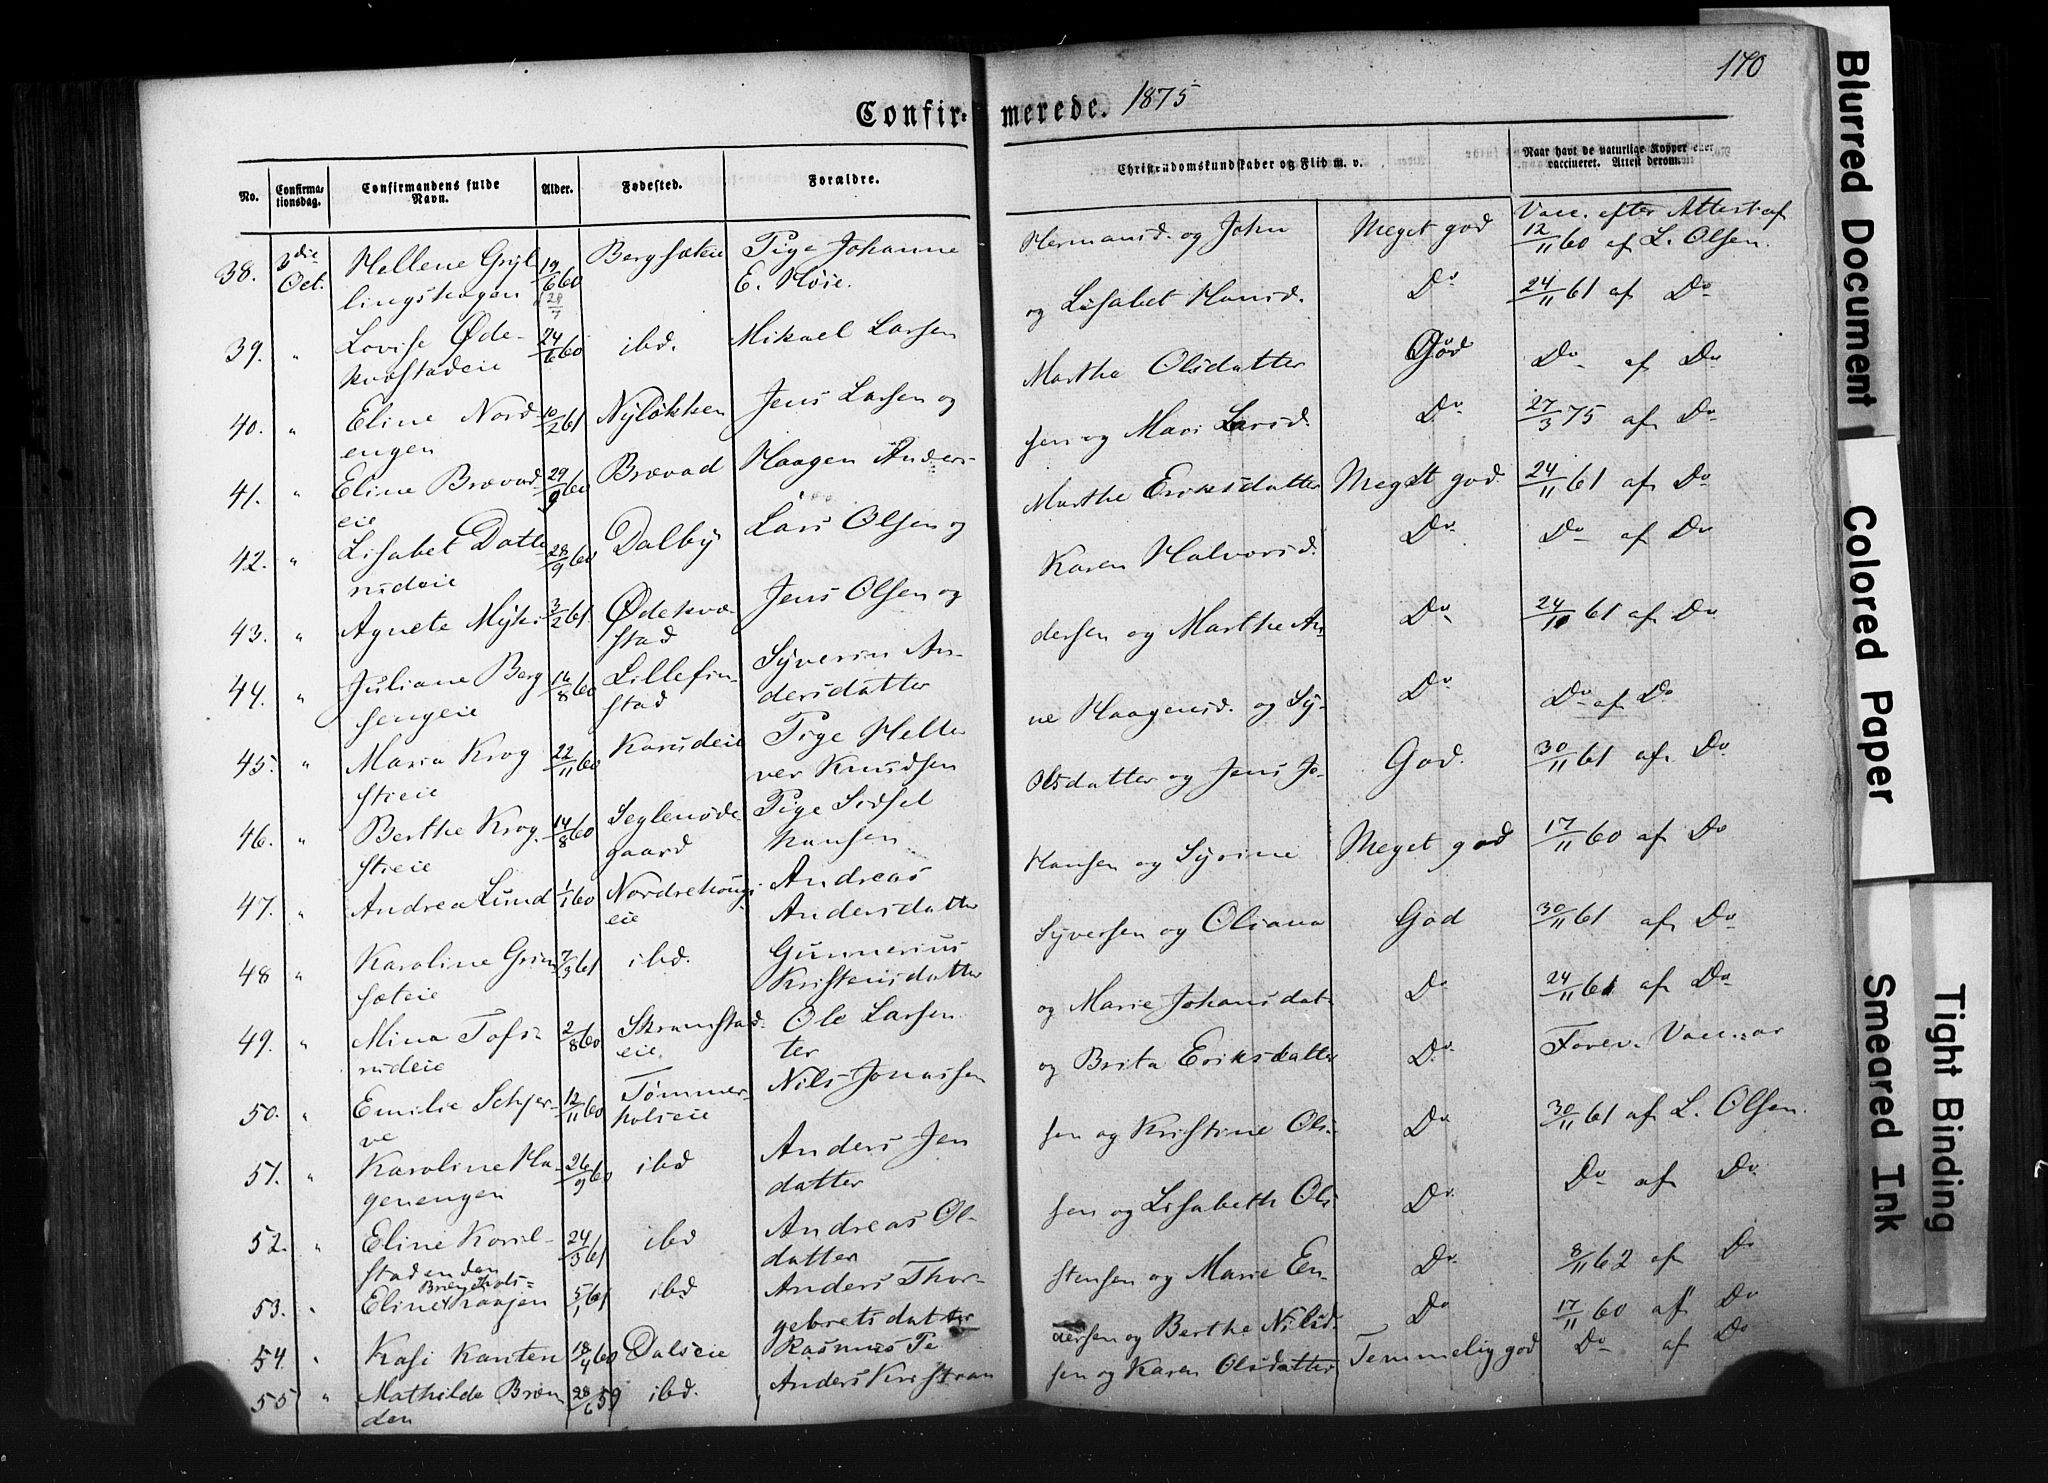 170
Confirmerede. 1875
No.
Confirmationsdag.
Confirmandens fulde Navn.
Alder.
Fødested.
Forældre.
Christendomskundskaber og Flid m. v.
Naar havt de naturlige Kopper eller vaccineret. Attest derom.
38. 3die Oct. Hellene Gryllingshagen 19/6 60 Bergsæteie Pige Johanne E. Høie.
39. " Lovise Ødekvastadeie 24/6 60 ibd. Mikael Larsen
40. " Eline Nordengen 10/2 61 Nyløkken Jens Larsen og
41. " Eline Brævadeie 29/9 60 Brævad Haagen Anders
42. " Lisabet Datterudeie 28/9 60 Dalby Lars Olsen og
43. " Agnete 3/2 61. Ødekvastad Jens Olsen og
44. " Juliane Bergsengeie 16/8 60 Lillefinstad Syverin Andersdatter
45. " Maria Krogstieie 22/11 60 Pige Knudsen
46. " Berthe Krogstieie 14/8 60 Seglenødegaard Pige Sidsel Hansen
47. " Andrea Lund 1/1 60 Andreas Andersdatter
48 " Karoline Grimsæteie 7/3 61 ibd. Gunnerius Kristensdatter
49. " Mina Tofsrudeie 2/8 60 Skramstadeie. Ole Larsen
ter
50. " Emilie Schjerve 12/11 60 Tømmerholseie Nils Jonassen
51. " Karoline Hagenengen 26/9 60 ibd Anders Jen
datter
52. " Eline 24/3 61 ibd Andreas Ol-
datter
53. " Eline 5/1 61 ibd Anders Thor-
gebretsdatter
54. " Kasi Kanten 18/4 60 Dalseie Rasmus Pe
55 " Mathilde Brænden 28/6 59 ibd. Anders Kristian
Hermansd. og John Meget god Vacc. efter Attest af 12/11 60 af L. Olsen.
og Lisabet Hansd. Do 24/11 61 af Do
Marthe Olsdatter God Do af Do
sen og Mari Larsd. Do 27/3 75 af Do
Marthe Eriksdatter Meget god 24/11 61 af Do
Karen Halvorsd. Do Do af Do
dersen og Marthe An Do 24/10 61 af Do
ne Haagensd. og Sy- Do Do af Do
Olsdatter og Jens Jo- God. 30/11 61 af Do
Hansen og Syrine Meget god 17/11 60 af Do
Syversen og Oliana God 30/11 61 af Do
og Marie Johansdat- Do 24/11 61 af Do
og Brita Eriksdatter Do Forev. Vacc.ar
sen og Kristine Ols- Do 30/11 61 af L. Olsen.
sen og Lisabeth Ols Do Do af Do
stensen og Marie En- Do 8/11 62 af Do
dersen og Berthe Nilsd. Do 17/11 60 af Do
sen og Karen Olsdatter Temmelig god Do af Do
Blurred Document
Colored Paper
Smeared Ink
Tight Binding